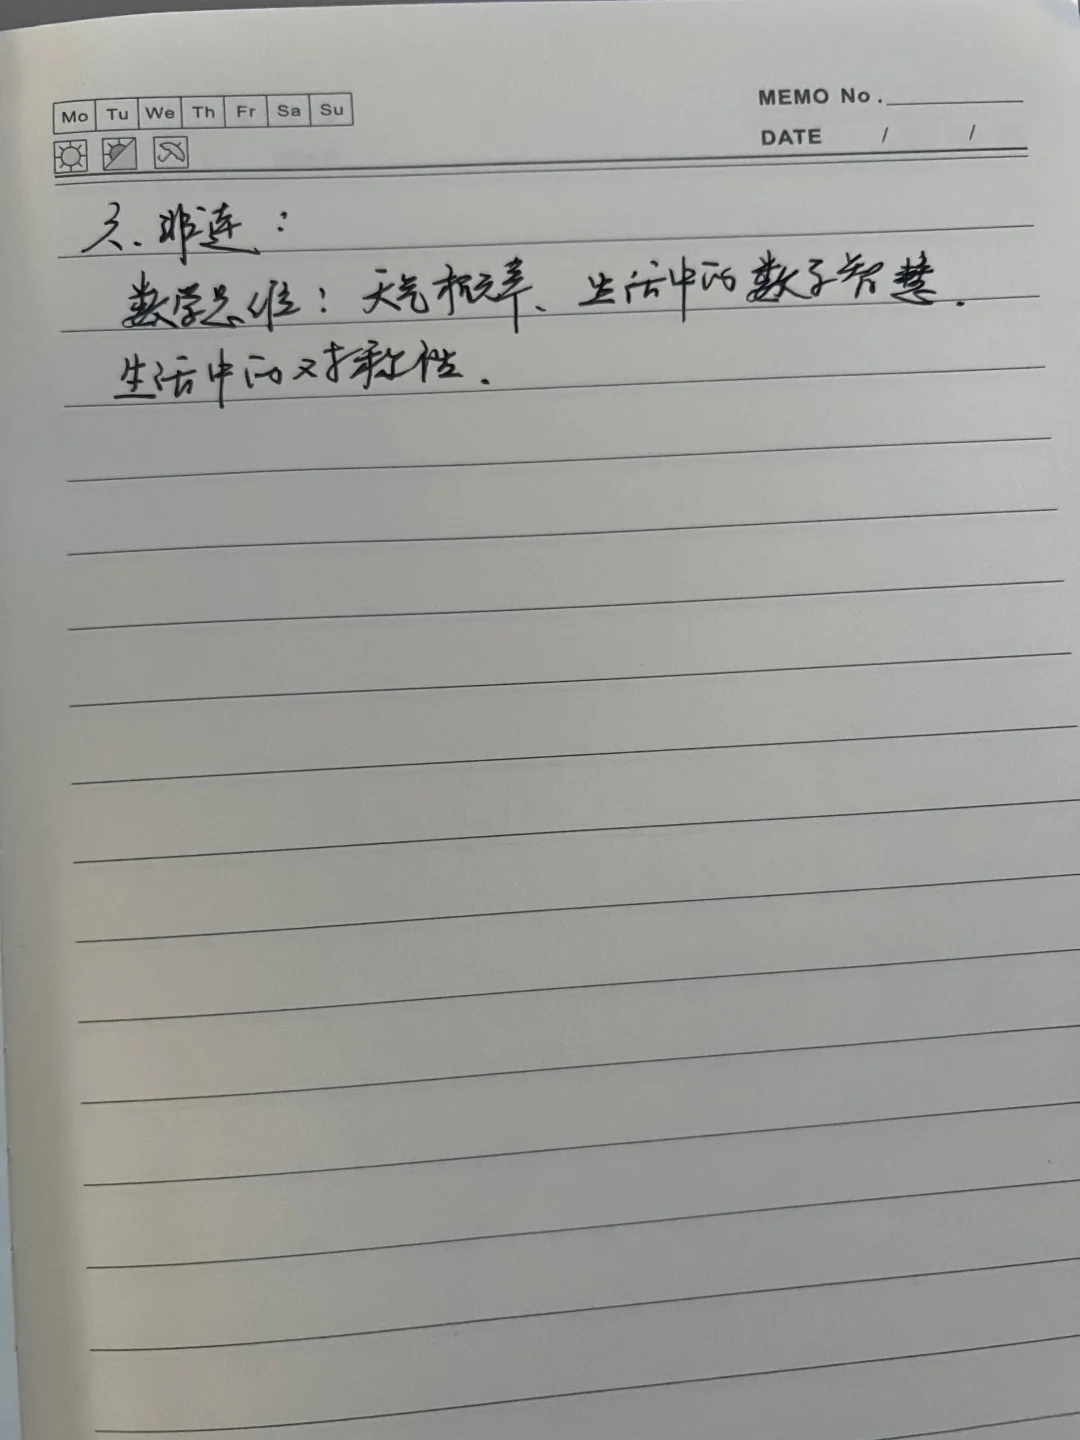 Mo Tu We Th Fr Sa Su
MEMO No.
DATE / /
六、非连：
数学思维：天气概率、生活中的数字智慧.
生活中的对称性.